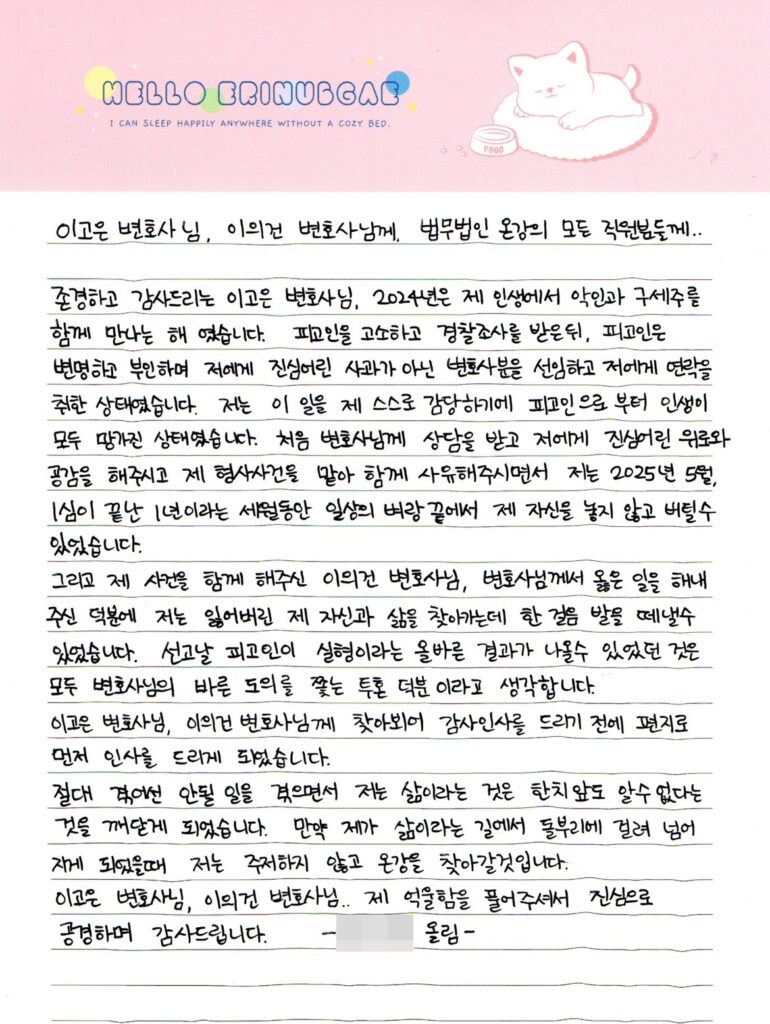 HELLO ERINUBGAE
I CAN SLEEP HAPPILY ANYWHERE WITHOUT A COZY BED.
FOOD
이고은 변호사님, 이의건 변호사님께, 법무법인 온강의 모든 직원분들께..
존경하고 감사드리는 이고은 변호사님, 2024년은 제 인생에서 악인과 구세주를
함께 만나는 해 였습니다. 피고인을 고소하고 경찰조사를 받은뒤, 피고인은
변명하고 부인하며 저에게 진심어린 사과가 아닌 변호사분을 선임하고 저에게 연락을
취한 상태였습니다. 저는 이 일을 제 스스로 감당하기에 피고인으로 부터 인생이
모두 망가진 상태였습니다. 처음 변호사님께 상담을 받고 저에게 진심어린 위로와
공감을 해주시고 제 형사사건을 맡아 함께 사유해주시면서 저는 2025년 5월,
1심이 끝난 1년이라는 세월동안 일상의 벼랑 끝에서 제 자신을 놓지 않고 버틸수
있었습니다.
그리고 제 사건을 함께 해주신 이의건 변호사님, 변호사님께서 옳은 일을 해내
주신 덕분에 저는 잃어버린 제 자신과 삶을 찾아가는데 한 걸음 발을 떼낼수
있었습니다. 선고날 피고인이 실형이라는 올바른 결과가 나올수 있었던 것은
모두 변호사님의 바른 도의를 쫓는 투혼 덕분 이라고 생각합니다.
이고은 변호사님, 이의건 변호사님께 찾아뵈어 감사인사를 드리기 전에 편지로
먼저 인사를 드리게 되었습니다.
절대 겪어선 안될 일을 겪으면서 저는 삶이라는 것은 한치 앞도 알수 없다는
것을 깨닫게 되었습니다. 만약 제가 삶이라는 길에서 돌부리에 걸려 넘어
지게 되었을때 저는 주저하지 않고 온강을 찾아갈것입니다.
이고은 변호사님, 이의건 변호사님.. 제 억울함을 풀어주셔서 진심으로
공경하며 감사드립니다. - 올림-